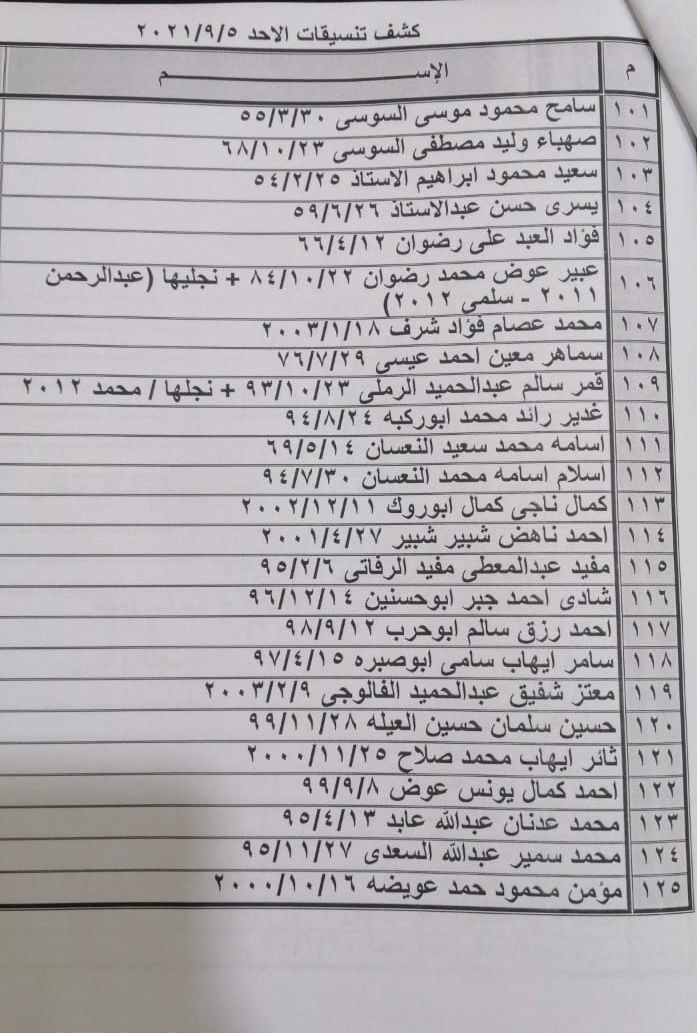 كشف تنسيقات الاحد ٢٠٢١/٩/٥
م الإســـــــــــــــم
١٠١ سامح محمود موسى السوسى ٥٥/٣/٣٠
١٠٢ صهباء وليد مصطفى السوسى ٦٨/١٠/٢٣
١٠٣ سعيد محمود ابراهيم الاستاذ ٥٤/٢/٢٥
١٠٤ يسرى حسن عبدالاستاذ ٥٩/٦/٢٦
١٠٥ فؤاد العبد على رضوان ٦٦/٤/١٢
١٠٦ عبير عوض محمد رضوان ٨٤/١٠/٢٢ + نجليها (عبدالرحمن
٢٠١١ - سلمى ٢٠١٢)
١٠٧ محمد عصام فؤاد شرف ٢٠٠٣/١/١٨
١٠٨ سماهر معين احمد عيسى ٧٦/٧/٢٩
١٠٩ قمر سالم عبدالحميد الرملى ٩٣/١٠/٢٣ + نجلها / محمد ٢٠١٢
١١٠ غدير رائد محمد ابوركبه ٩٤/٨/٢٤
١١١ اسامه محمد سعيد النعسان ٦٩/٥/١٤
١١٢ اسلام اسامه محمد النعسان ٩٤/٧/٣٠
١١٣ كمال ناجى كمال ابوروك ٢٠٠٢/١٢/١١
١١٤ احمد ناهض شبير شبير ٢٠٠١/٤/٢٧
١١٥ مفيد عبدالمعطى مفيد الرفاتى ٩٥/٢/٦
١١٦ شادى احمد جبر ابوحسنين ٩٦/١٢/١٤
١١٧ احمد رزق سالم ابوحرب ٩٨/٩/١٢
١١٨ سامر ايهاب سامى ابوصبره ٩٧/٤/١٥
١١٩ معتز شفيق عبدالحميد الفالوجى ٢٠٠٣/٢/٩
١٢٠ حسين سلمان حسين العيله ٩٩/١١/٢٨
١٢١ ثائر ايهاب محمد صلاح ٢٠٠٠/١١/٢٥
١٢٢ احمد كمال يونس عوض ٩٩/٩/٨
١٢٣ محمد عدنان عبدالله عابد ٩٥/٤/١٣
١٢٤ محمد سمير عبدالله السعدى ٩٥/١١/٢٧
١٢٥ مؤمن محمود حمد عويضه ٢٠٠٠/١٠/١٦